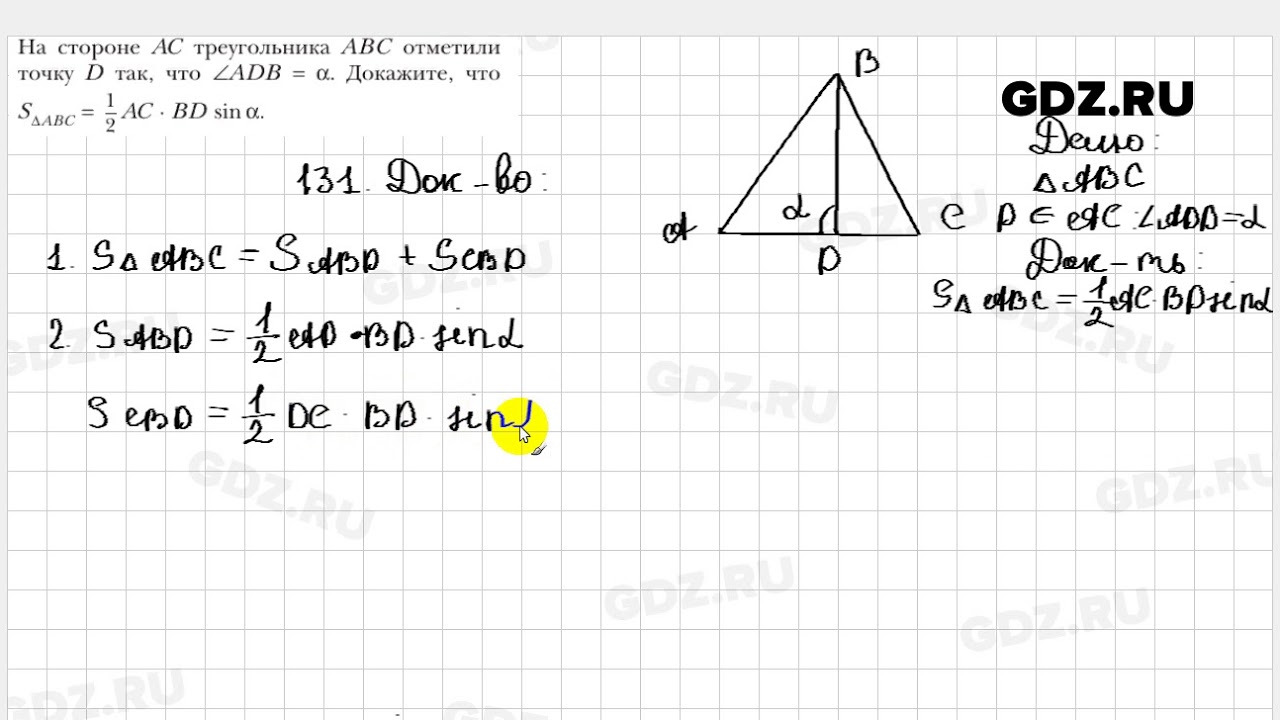 На стороне AC треугольника ABC отметили
точку D так, что ∠ADB = α. Докажите, что
S△ABC = 1/2 AC · BD sin α.
GDZ.RU
131. Док-во:
1. S△ABC = SABD + SCBD
2. SABD = 1/2 AD · BD · sinα
SCBD = 1/2 DC · BD · sin
B
A
α
C
D
Дано:
△ABC
D ∈ AC : ∠ADB = α
Док-ть:
S△ABC = 1/2 AC · BD sinα
GDZ.RU
GDZ.RU
GDZ.RU
GDZ.RU
GDZ.RU
GDZ.RU
GDZ.RU
GDZ.RU
GDZ.RU
GDZ.RU